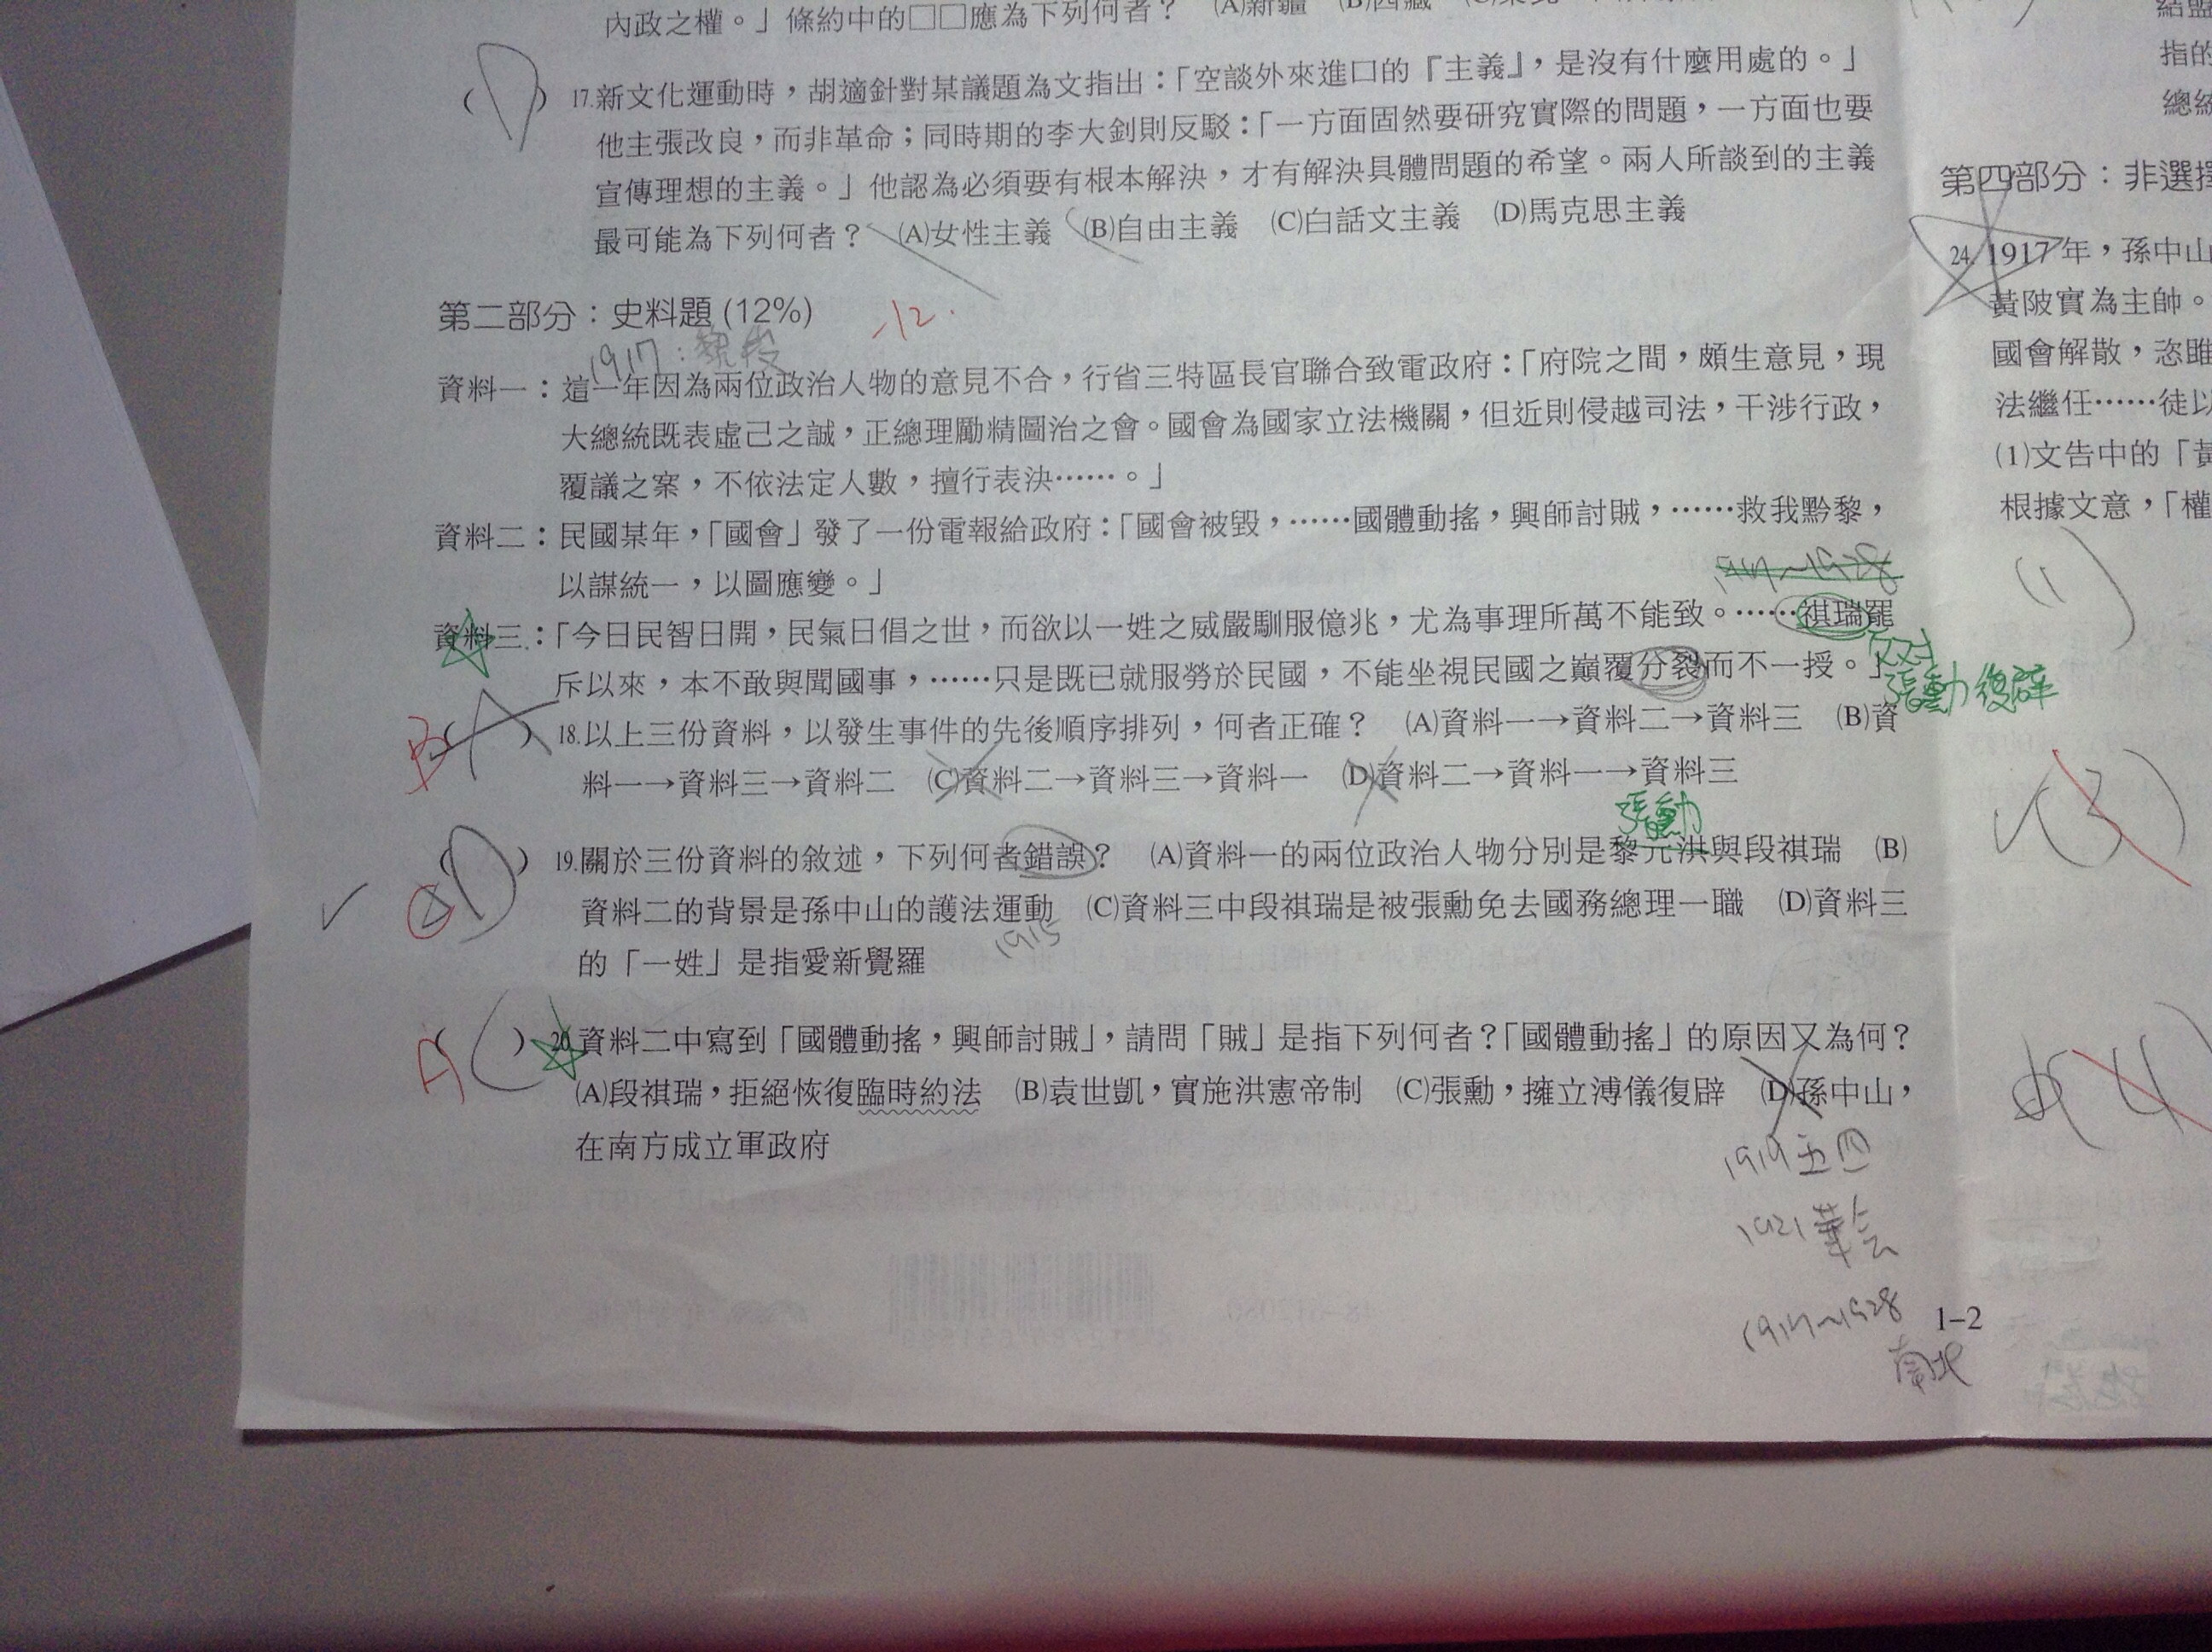 內政之權。」條約中的□□應為下列何者? (A)新疆 (B)西藏
(D) 17.新文化運動時，胡適針對某議題為文指出：「空談外來進口的『主義』，是沒有什麼用處的。」
他主張改良，而非革命；同時期的李大釗則反駁：「一方面固然要研究實際的問題，一方面也要
宣傳理想的主義。」他認為必須要有根本解決，才有解決具體問題的希望。兩人所談到的主義
最可能為下列何者? (A)女性主義 (B)自由主義 (C)白話文主義 (D)馬克思主義
第二部分：史料題 (12%) -12.
1917:
資料一：這一年因為兩位政治人物的意見不合，行省三特區長官聯合致電政府：「府院之間，頗生意見，現
大總統既表虛己之誠，正總理勵精圖治之會。國會為國家立法機關，但近則侵越司法，干涉行政，
覆議之案，不依法定人數，擅行表決……。」
資料二：民國某年，「國會」發了一份電報給政府：「國會被毀，……國體動搖，興師討賊，……救我黔黎，
以謀統一，以圖應變。」
1917~1928
資料三：「今日民智日開，民氣日倡之世，而欲以一姓之威嚴馴服億兆，尤為事理所萬不能致。……祺瑞罷
斥以來，本不敢與聞國事，……只是既已就服勞於民國，不能坐視民國之巔覆分裂而不一授。」
反对
張勳復辟
B (A) 18.以上三份資料，以發生事件的先後順序排列，何者正確? (A)資料一→資料二→資料三 (B)資
料一→資料三→資料二 (C)資料二→資料三→資料一 (D)資料二→資料一→資料三
張勳
(D) 19.關於三份資料的敘述，下列何者錯誤? (A)資料一的兩位政治人物分別是黎元洪與段祺瑞 (B)
資料二的背景是孫中山的護法運動 (C)資料三中段祺瑞是被張勳免去國務總理一職 (D)資料三
的「一姓」是指愛新覺羅
1915
A (C) 20.資料二中寫到「國體動搖，興師討賊」，請問「賊」是指下列何者?「國體動搖」的原因又為何?
(A)段祺瑞，拒絕恢復臨時約法 (B)袁世凱，實施洪憲帝制 (C)張勳，擁立溥儀復辟 (D)孫中山，
在南方成立軍政府
1919 五四
1921 華会
1917~1928
南北
1-2
結盟
指的
總統
第四部分：非選擇
24. 1917年，孫中山
黃陂實為主帥。
國會解散，恣睢
法繼任……徒以
(1)文告中的「黃
根據文意，「權
(1)
(3)
(4)